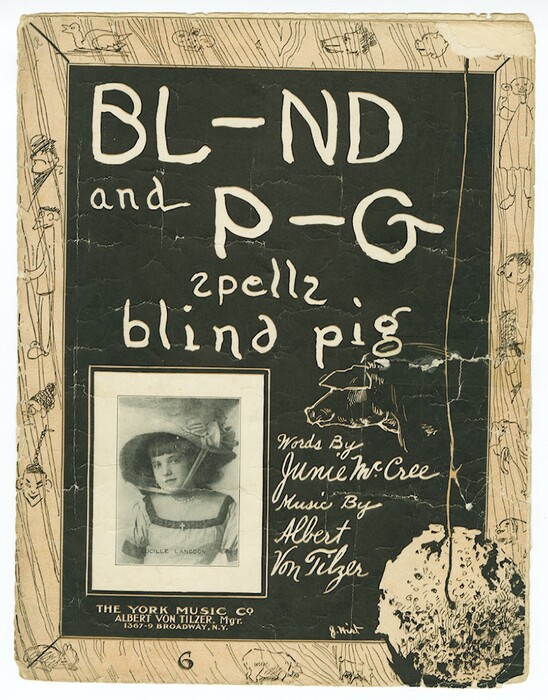 BL-ND
and P-G
spells
blind pig
Words By
Junie McCree
Music By
Albert
Von Tilzer
LUCILLE LANGDON
THE YORK MUSIC CO
ALBERT VON TILZER, Mgr.
1367-9 BROADWAY, N.Y.
J. Hirt
6